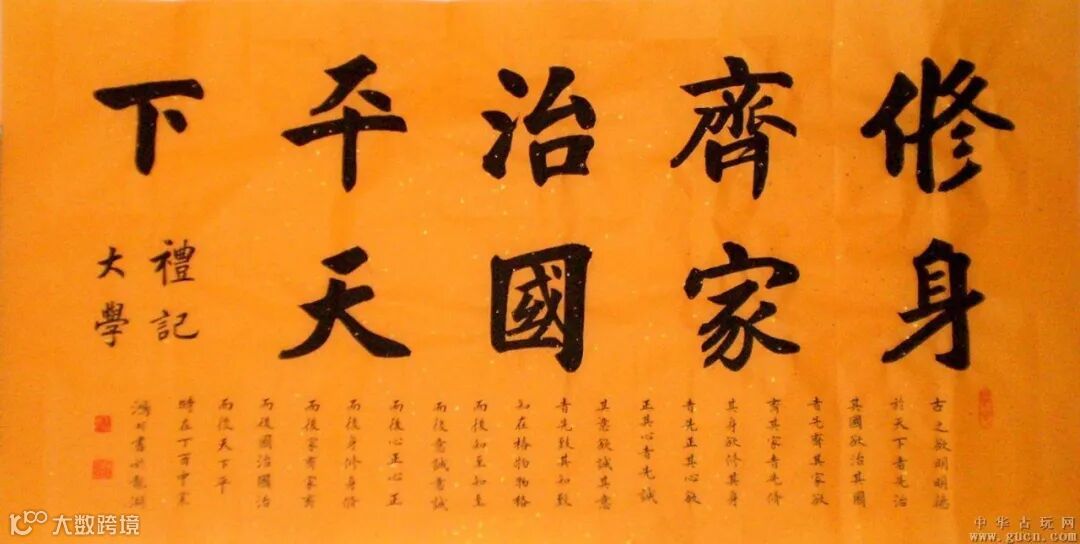 修身
齊家
治國
平天
下
禮記
大學
古之欲明明德
於天下者先治
其國欲治其國
者先齊其家欲
齊其家者先修
其身欲修其身
者先正其心欲
正其心者先誠
其意欲誠其意
者先致其知致
知在格物物格
而後知至知至
而後意誠意誠
而後心正心正
而後身修身修
而後家齊家齊
而後國治國治
而後天下平
時在丁酉中秋
書於龍湖
大数跨境
中华古玩网
www.gucn.com